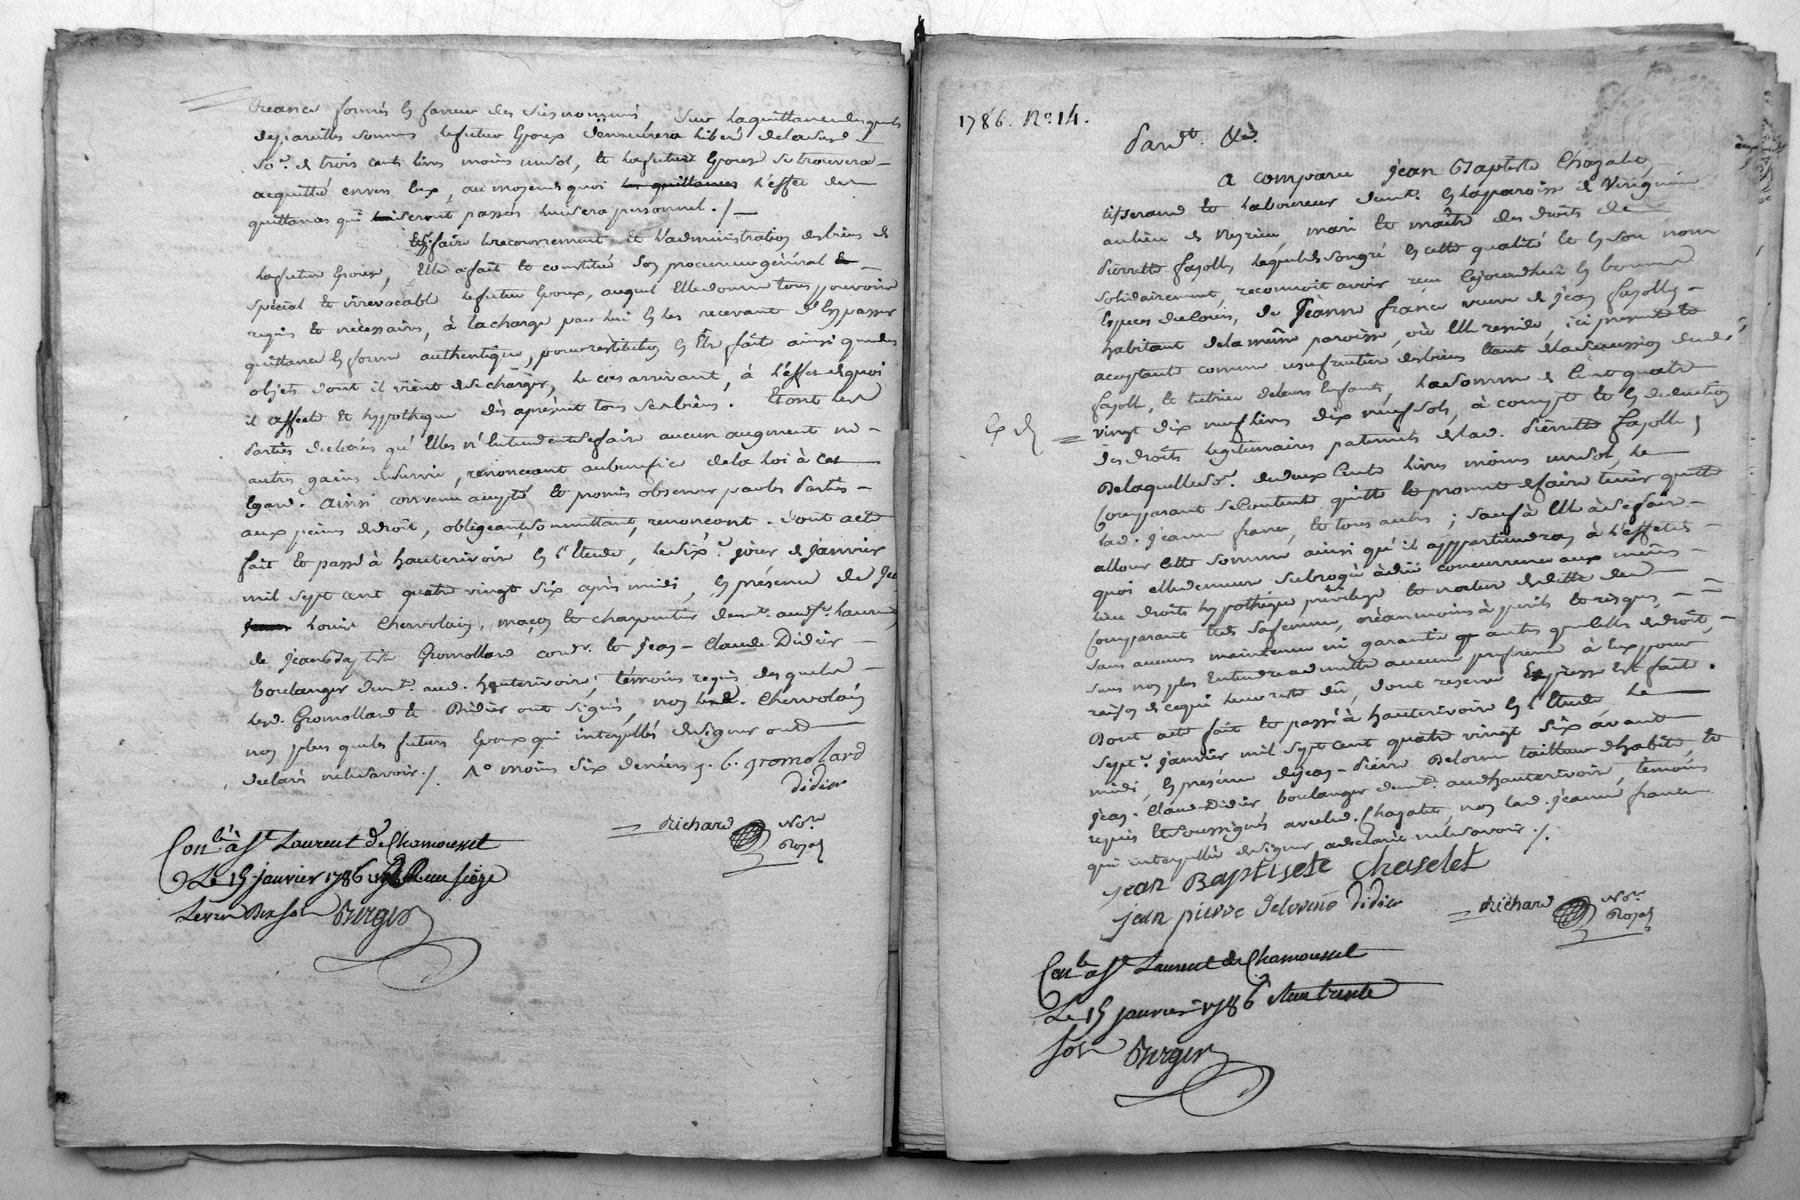 créance formés en faveur des susnommés, sur la quittance desquels
de pareilles sommes, le futur époux demeurera libéré de lad.
So.e de trois cents livres moins un sol, et la future épouse se trouvera
acquittée envers eux, au moyen de quoi les quittances l'effet des
quittances qui lui seront passées lui sera personnel./.
Et pr. faire le recouvrement et l'administration des biens de
la future épouse, Elle a fait et constitué son procureur général et
spécial et irrévocable le futur époux, auquel Elle donne tous pouvoirs
requis et nécessaires, à la charge par lui en les recevant d'en passer
quittance en forme authentique, pour restitution en être fait ainsi que des
objets dont il vient de se charger, le cas arrivant, à l'effet de quoi
il affecte et hypothèque dès à présent tous ses biens. Etant les
Parties déclarées qu'Elles n'entendent se faire aucun augment ni
autres gains de survie, renonceant au bénéfice de la loi à cet
égard. Ainsi convenu accepté et promis observer par les Parties
aux peines de droit, obligeant, soumettant, renonceant. Dont acte
fait et passé à hauterivoire en l'Etude, le six.e jour de janvier
mil sept cent quatre vingt six après midi, En présence de Je
jeanne Louis Chervolain, maçon et charpentier demt. aud. St. Laurent,
de Jean Baptiste Gromollard cordr. et Jean-Claude Didier
boulanger demt. aud. hauterivoire, témoins requis desquels
lesd. Gromollard et Didier ont signés, non led. Chervolain
non plus que les futurs époux qui interpellés de signer ont
déclaré ne le savoir./. No moins six deniers j. b. gromolard
didier
Richard No.re Royal
Con.lé à St Laurent de Chamousset
Le 15 janvier 1786
Berger
1786. No. 14.
Pardt. &a.
A comparu jean Baptiste Chazalet
tisserand et laboureur demt. en la paroisse de Virigneux
au lieu de Meyrieu, mari et maître des droits de
Pierrette fayolle, lequel de son gré en cette qualité et en son nom
solidairement, reconnoit avoir reçu cejourd'hui en bonnes
Espèces de cours, de Jeanne france veuve de jean fayolle
habitant de la même paroisse, où Elle reside, ici présente et
acceptante comme usufruitière des biens tant de la succession dud.
fayolle, et tutrice de leurs Enfants, la somme de Cent quatre
vingt dix neuf livres dix neuf sols, à compte et en déduction
des droits légitimaires paternels de lad. Pierrette fayolle;
De laquelle so.e de deux cents livres moins un sol, le
Comparant se contente quitte et promet de faire tenir quitte
lad. Jeanne france, et tous autres; sauf à Elle à se faire
allouer cette somme ainsi qu'il appartiendra à l'effet de
quoi elle demeure subrogée à due concurrence aux mêmes
lieu droits hypothèque privilège et nature de dette dud.
Comparant et de sa femme, néanmoins à périls et risques,
sans aucune maintenue ni garantie autres que celles de droit,
sans non plus Entendre admettre aucune preference à eux pour
raison de ce qui leur reste dû, dont reserve Expresse est faite.
Dont acte fait et passé à hauterivoire en l'Etude, le
sept.e janvier mil sept cent quatre vingt six avant
midi, En présence de jean-Pierre Delorme tailleur d'habits, et
jean-Claude Didier boulanger demt. aud. hauterivoire, temoins
requis et soussignés avec led. Chazalet, non lad. jeanne france
qui interpellée de signer a déclaré ne le savoir./.
jean Baptisete Chaselet
jean pierre delorme didier
Richard No.re Royal
Con.lé à St Laurent de Chamousset
Le 15 janvier 1786 Reçu trente
sols Berger